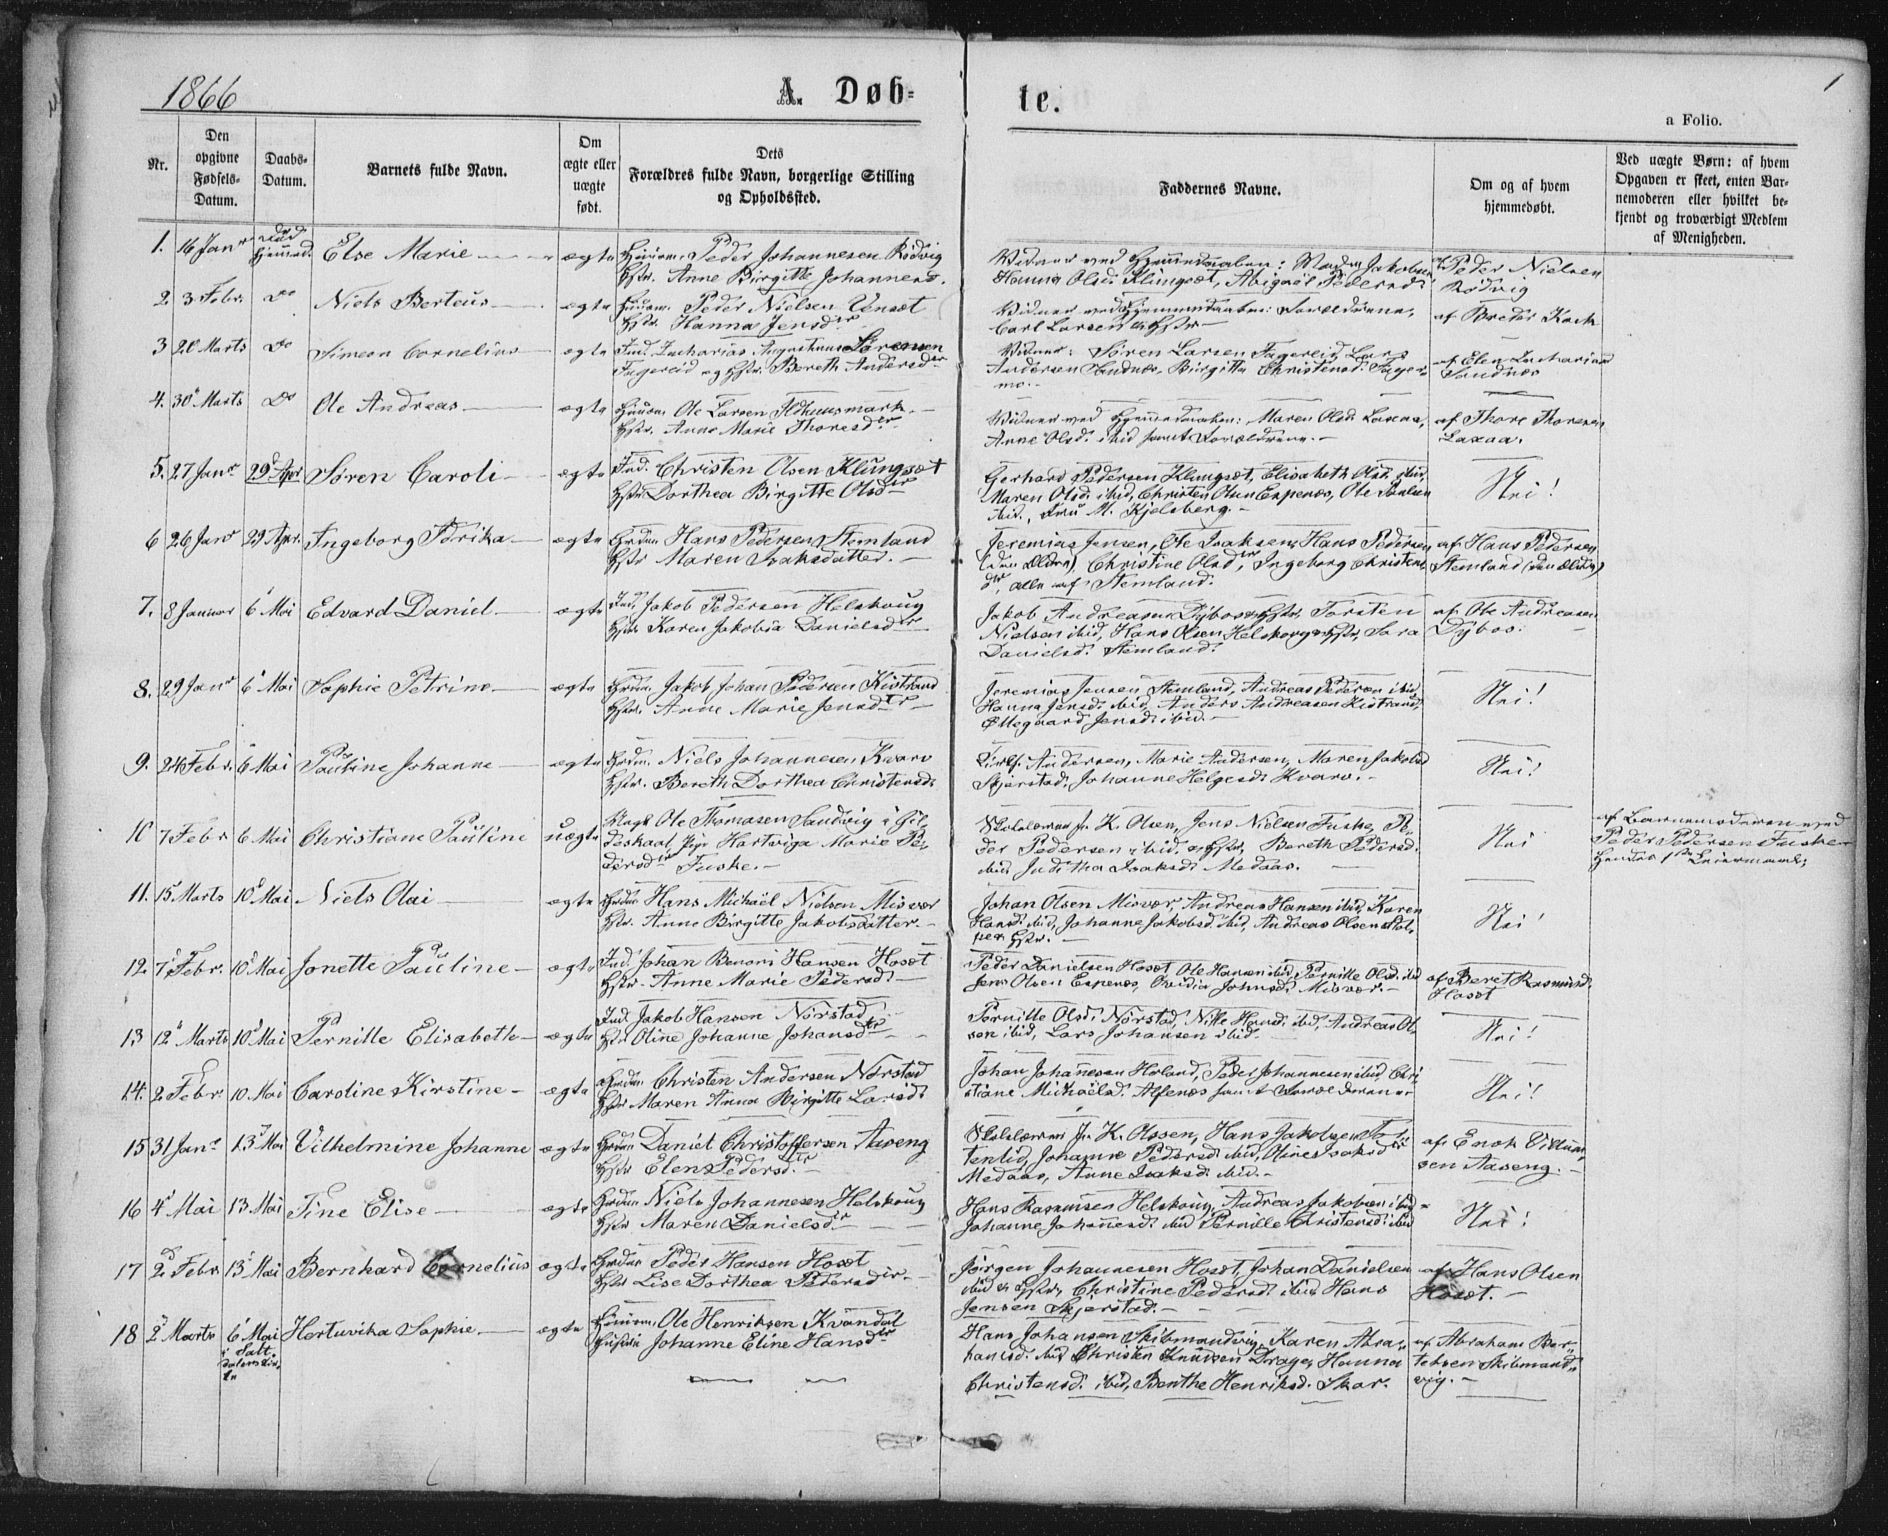 1866
A. Døb-
te.
1
a Folio.
Nr.
Den opgivne Fødsels-Datum.
Daabs-Datum.
Barnets fulde Navn.
Om ægte eller uægte født.
Dets Forældres fulde Navn, borgerlige Stilling og Opholdssted.
Faddernes Navne.
Om og af hvem hjemmedøbt.
Ved uægte Børn: af hvem Opgaven er skeet, enten Barnemoderen eller hvilket bekjendt og troværdigt Medlem af Menigheden.
1. 16 Janr Else Marie ægte Peder Johannesen Rødvig
Hstr. Anne Birgitte Johannesd.
Vidner ved Hjemmedaaben: Jakobsen
Hanna Olsd. Klungset, Abigael Pedersd.
af Peder Nielsen
Rødvig
2. 3 Febr. Do Niels Berteus ægte Peder Nielsen Venset
Hstr. Hanna Jensdr
Vidner ved Hjemmedaaben: Forældrene,
Carl Larsen & Hstr
af Breder Koch
3 20 Marts Do Simeon Cornelius ægte Ind. Zacharias Augustinus Sørensen
Fagereid og Hstr. Bereth Andersdr
Vidner: Søren Larsen Fagereid, Lars
Andersen Sandnes, Birgitte Christensd. Fager-
mo.
af Elen Zachariasd
Sandnæs
4. 30 Marts Do Ole Andreas ægte Ole Larsen Ildhuusmark
Hstr. Anne Marie Thoresdr
Vidner ved Hjemmedaaben: Maren Olsd. Laxaa,
Anne Olsd. ibid samt Forældrene.
af Thore Thoresen
Laxaa.
5. 27 Janr 29 Apr Søren Caroli ægte Ind. Christen Olsen Klungset
Hstr Dorthea Birgitte Olsdr
Gerhard Pedersen Klungset, Elisabeth Olsd. ibid,
Maren Olsd. ibid, Christen Olsen Espenæs, Ole Paulsen
ibid., Fru M. Kjelsberg.
Nei!
6 26 Janr 29 Apr. Ingeborg Fdrika ægte Grdm. Hans Pedersen Stemland
Hstr Maren Isaksdatter.
Jeremias Jensen, Ole Isaksen, Hans Pedersen
(den Ældre), Christine Olsdr, Ingeborg Christens
dr, alle af Stemland.
af Hans Pedersen
Stemland (den ældre)
7. 8 Januar 6 Mai Edvard Daniel ægte Ind. Jakob Pedersen Helskoug
Hstr Karen Jakobia Danielsdr
Jakob Andreasen Dybos & Hstr, Torsten
Nielsen ibid, Hans Olsen Helskoug & Hstr, Sara
Danielsd. Stemland.
af Ole Andreasen
Dybos.
8. 29 Janr 6 Mai Sophie Petrine ægte Grdm. Jakob Johan Pedersen Kistrand
Hstr. Anne Marie Jensdtr
Jeremias Jensen Stemland, Andreas Pedersen ibid
Hanna Jensd. ibid, Anders Andreasen Kistrand,
Ellegaard Jensd. ibid.
Nei!
9. 24 Febr. 6 Mai Pauline Johanne ægte Grdm. Niels Johannesen Kvarv
Hstr. Bereth Dorthea Christensd.
Andersen, Marie Andersen, Maren Jakobsd
Skjerstad, Johanne Helgesd. Kvarv.
Nei!
10 7 Febr 6 Mai Christiane Pauline uægte Ole Thomasen Sandvig i Gil-
deskaal, Pige Hartviga Marie Pe-
dersdr Fuske.
Skolelærer Fr. K. Olsen, Jens Nielsen Fuske, Pe-
der Pedersen ibid & Hstr, Bereth Pedersd.
ibid, Juditha Isaksd. Medaas.
Nei
af Barnemoderen med
Peder Pedersen Fuske
Hendes 1ste Leiermaal.
11. 15 Marts 10 Mai Niels Olai ægte Grdm Hans Michael Nielsen Misvær
Hstr. Anne Birgitte Jakobsdatter.
Johan Olsen Misvær, Andreas Hansen ibid, Karen
Hansd. ibid, Johanne Jakobsd. ibid, Andreas Olsen Stol-
pen Hstr.
Nei!
12. 7 Febr. 10 Mai Jonette Pauline ægte Ind. Johan Benoni Hansen Hoset
Hstr. Anne Marie Pedersd.
Peder Danielsen Hoset, Ole Hansen ibid, Pernille Olsd. ibid
Jens Olsen Espenæs, Ovidia Johnsd. Misvær.
af Beret Rasmusd.
Hoset
13 12 Marts 10 Mai Pernille Elisabeth ægte Ind. Jakob Hansen Nørstad
Hstr Oline Johanne Johansdtr
Pernille Olsd. Nørstad, Nille Hansd. ibid, Andreas Ol-
sen ibid, Lars Johansen ibid.
Nei!
14. 2 Febr. 10 Mai Caroline Kirstine ægte Grdm Christen Andersen Nørstad
Hstr Maren Anna Birgitte Larsd.
Johan Johannesen Høland, Peder Johannesen ibid, Chri-
stiane Michaelsd. Alfenæs samt Forældrene
Nei!
15 31 Janr 13 Mai Vilhelmine Johanne ægte Grdm Daniel Christoffersen Aaseng
Hstr Elen Pedersdtr.
Skolelærer Fr. K. Olssen, Hans Jakobsen
Johanne Pedersd. ibid, Oline Isaksdtr
Medaas, Anne Isaksd. ibid.
af Enok Villum-
sen Aaseng.
16 4 Mai 13 Mai Tine Elise ægte Grdm Niels Johannesen Helskoug
Hstr Maren Danielsdr
Hans Rasmusen Helskoug, Andreas Jakobsen ibid
Johanne Johannesd. ibid Pernille Christensd. ibid
Nei!
17 2 Febr 13 Mai Bernhard Cornelius ægte Grdm Peder Hansen Hoset
Hstr Lise Dorthea Petersdtr.
Jørgen Johannesen Hoset, Johan Danielsen
ibid & Hstr, Christine Pedersd. ibid, Hans
Jensen Skjerstad.
af Hans Olsen
Hoset.
18 2 Marts 6 Mai
i Salt-
dalens Kir-
ke Hertuvika Sophie ægte Ole Henriksen Kvandal
Hustru Johanne Eline Hansdr
Hans Johansen Skibmandvig, Karen Abra-
hamsd. ibid Christen Knudsen Drage, Hanna
Christensd. ibid, Benthe Henriksd. Skar.
af Abraham Ber-
telsen Skibmand-
vig.